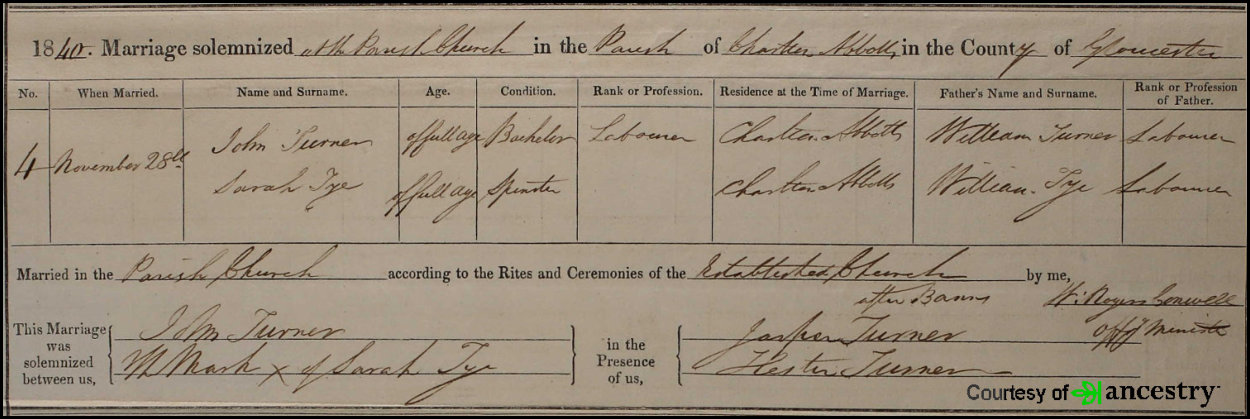 1840. Marriage solemnized at the Parish Church in the Parish of Charlton Abbotts in the County of Gloucester
No. When Married. Name and Surname. Age. Condition. Rank or Profession. Residence at the Time of Marriage. Father's Name and Surname. Rank or Profession of Father.
4 November 28th John Turner of full age Bachelor Labourer Charlton Abbotts William Turner Labourer
Sarah Tye of full age Spinster Charlton Abbotts William Tye Labourer
Married in the Parish Church according to the Rites and Ceremonies of the Established Church by me,
after Banns W. Rogers
Offg Minister
This Marriage was solemnized between us, John Turner in the Presence of us, Jasper Turner
Mark x of Sarah Tye Hester Turner
Courtesy of ancestry